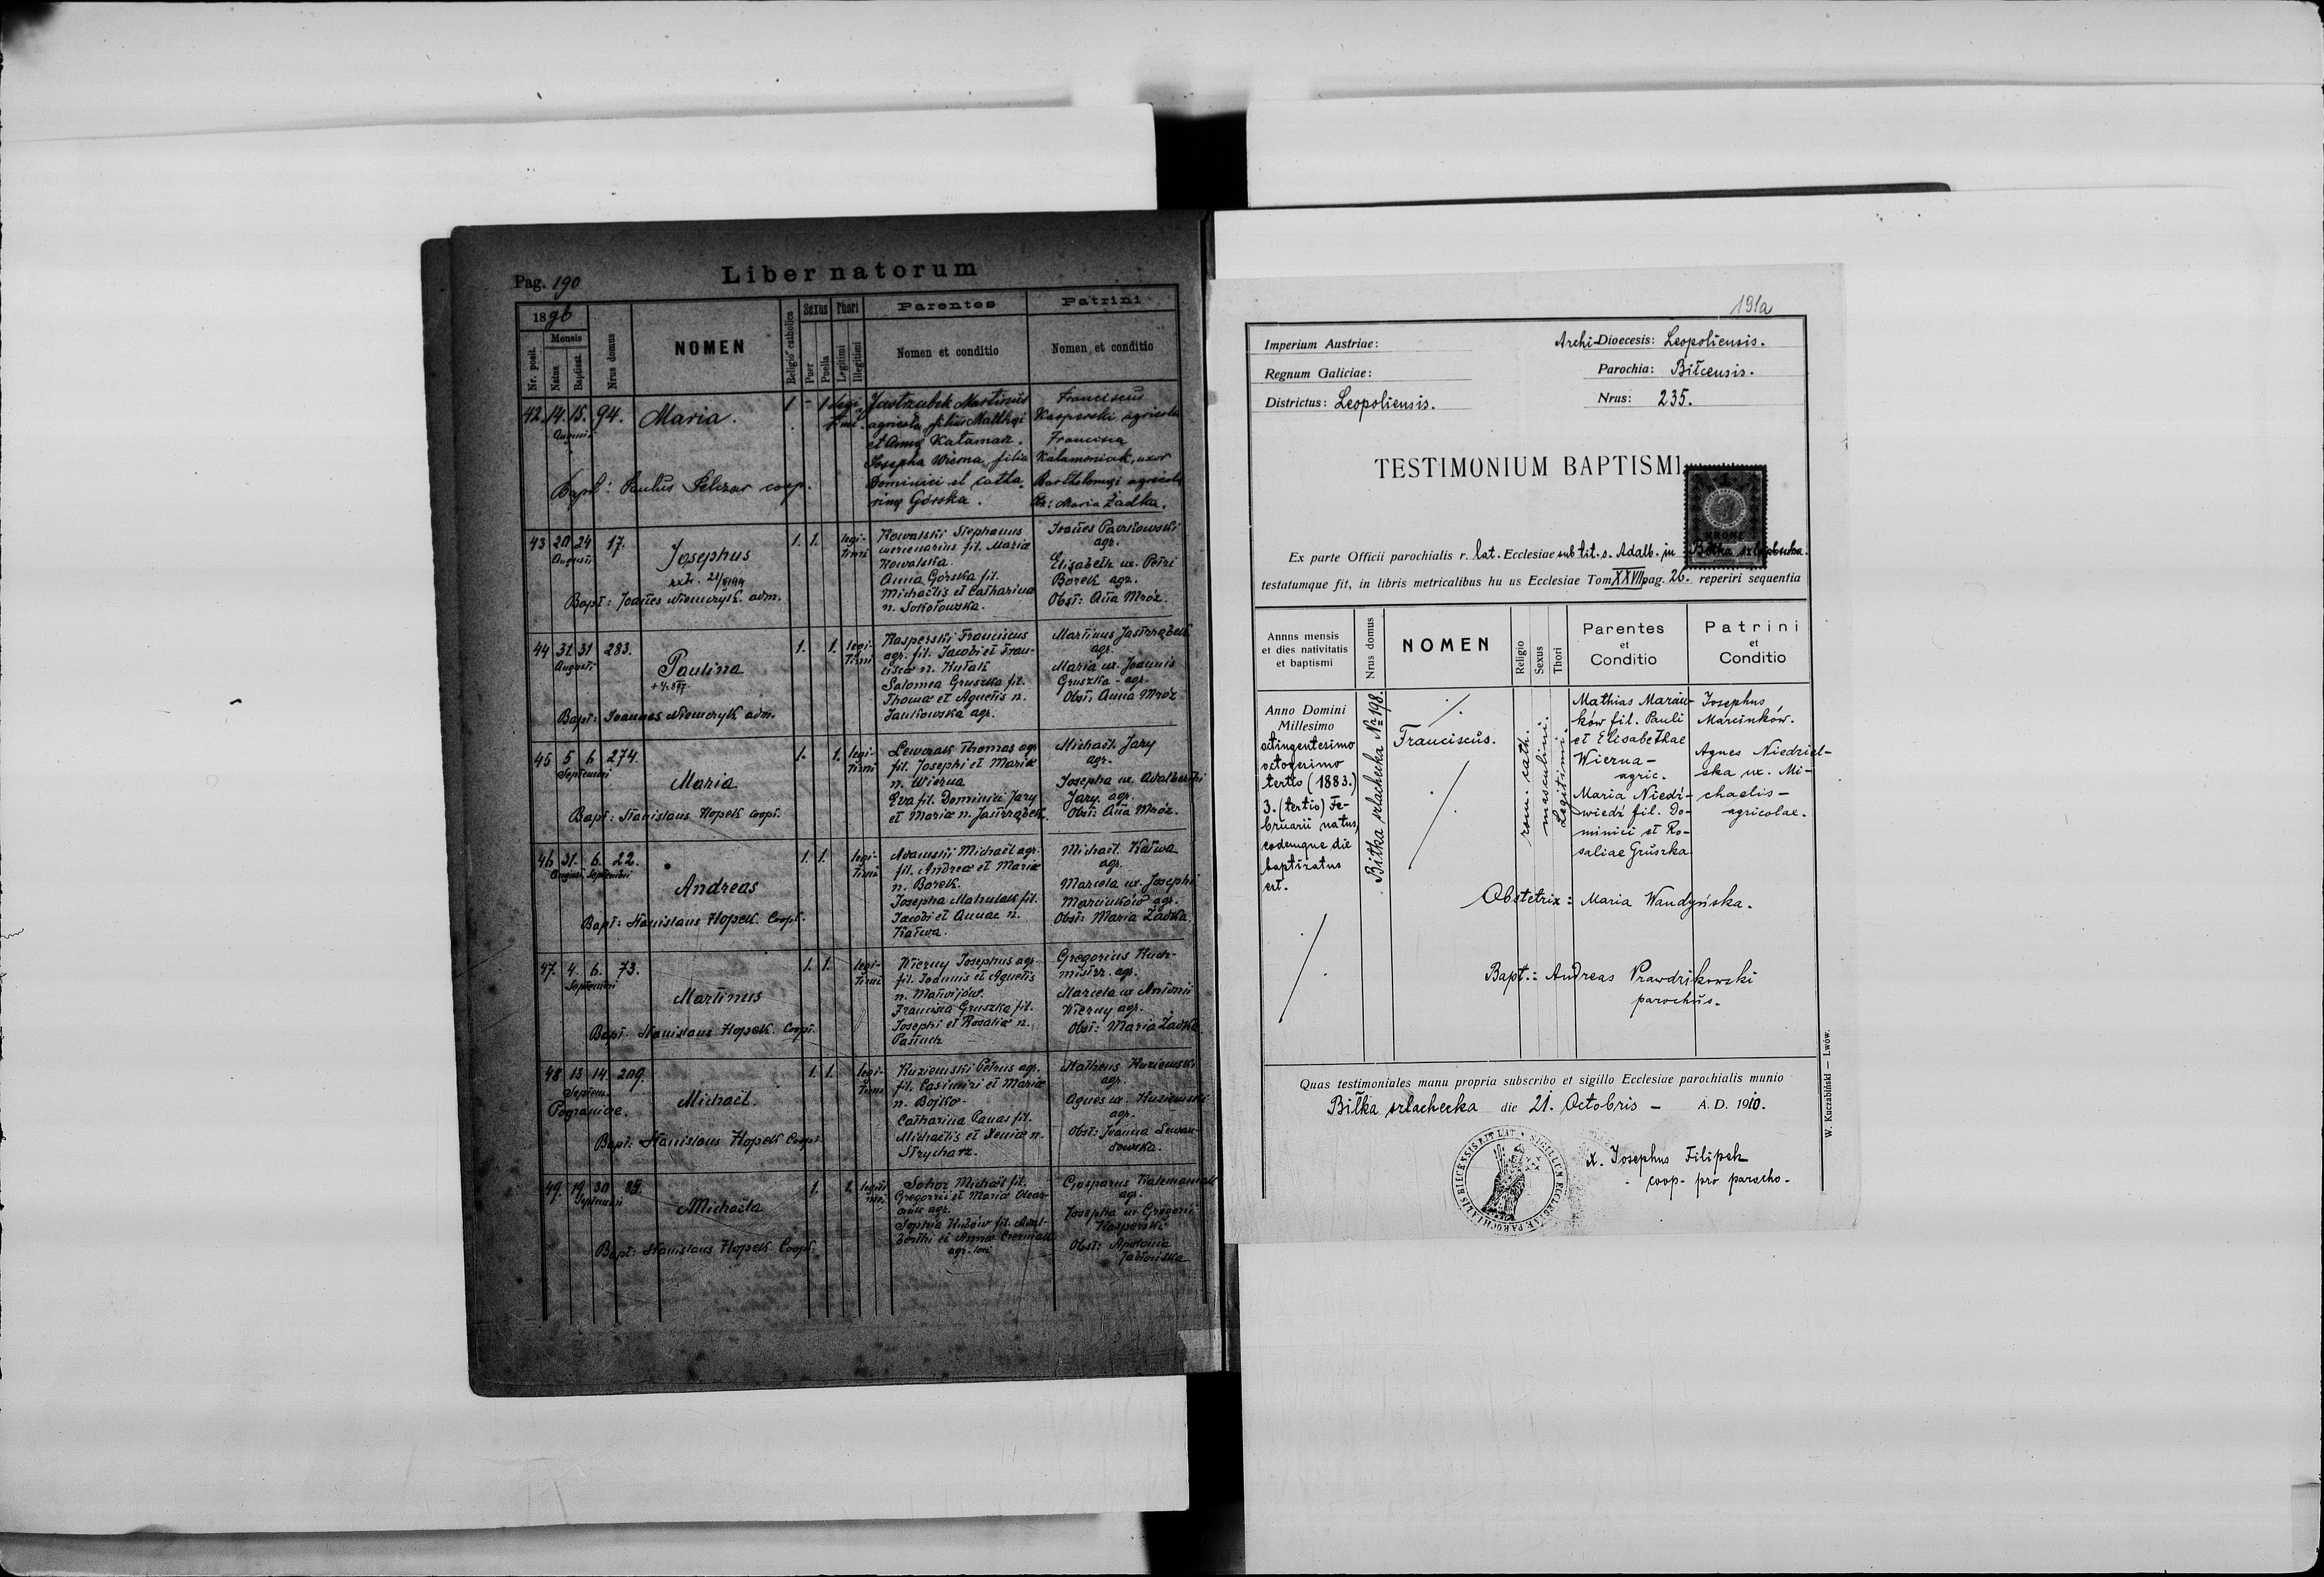 Pag. 190
Liber natorum
1896
Mensis
Nr. posit.
Natus
Baptisat.
Nrus domus
NOMEN
Religio catholica
Sexus
Puer
Puella
Thori
Legitimi
Illegitimi
Parentes
Nomen et conditio
Patrini
Nomen et conditio
42. 14. 15. 94. Maria. 1 - 1 legi
Augusti
timi
Jastrzabek Martinus
agricola, filius Matthæi
et Annæ Kałaman.
Josepha Wierna, filia
Dominici et Catha-
rinæ Górska.
Franciscus
Kasperski agricola
Francisca
Kałamoniak, uxor
Bartholomæi agricola
Ob: Maria Żadka.
Bapt: Paulus Pelczar coop.
43 20 24 17. Josephus 1. 1. legi-
Augusti
timi
Kowalski Stephanus
mercenarius fil. Mariæ
Kowalska.
Anna Górska fil.
Michaëlis et Catharinæ
n. Sokołowska.
Joañes Pawłowski
agr.
Elisabeth ux. Petri
Borek agr.
Obst: Aña Mróz.
Bapt: Joañes Niemczyk. adm.
44 31 31 283. Paulina 1. 1. legi-
Augusti
timi
Kasperski Franciscus
agr. fil. Jacobi et Fran-
ciscæ n. Kułak
Salomea Gruszka fil.
Thomæ et Agnetis n.
Jankowska agr.
Martinus Jastrząbek
agr.
Maria ux. Joannis
Gruszka - agr.
Obst: Anna Mróz
Bapt: Joannes Niemczyk adm.
45 5 6 274. Maria 1. 1. legi-
Septembri
timi
Lewczak Thomas agr
fil. Josephi et Mariæ
n. Wierna
Eva fil. Dominici Jary
et Mariæ n. Jastrząbek.
Michaël Jary
agr.
Josepha ux. Adalberthi
Jary. agr.
Obst: Aña Mróz.
Bapt: Stanislaus Hopek coopt.
46 31. 6. 22. Andreas 1. 1. legi-
Augusti, Septembri
timi
Adamski Michaël agr.
fil. Andreæ et Mariæ
n. Borek.
Josepha Mahulak fil.
Jacobi et Annae n.
Kałwa.
Michaël Kałwa
agr.
Marcela ux. Josephi
Marcinków agr.
Obst: Maria Żadka.
Bapt: Stanislaus Hopek. Coopt.
47. 4. 6. 73. Martinus 1. 1. legi-
Septembri
timi
Wierny Josephus agr.
fil. Joannis et Agnetis
n. Matwijów.
Francisca Gruszka fil.
Josephi et Rosaliæ n.
Pastuch
Gregorius Kuch-
mistrz. agr.
Marcela ux Antonii
Wierny agr.
Obst: Maria Żadka
Bapt. Stanislaus Hopek. Coopt.
48 13 14. 209. Michaël. 1. 1. legi-
Septem.
timi
Pograniae.
Kuziemski Petrus agr.
fil. Casimiri et Mariæ
n. Bojko-
Catharina Canas fil.
Michaëlis et Xeniæ n.
Strycharz.
Matheus Kuziemski
agr.
Agnes ux. Kuziemski
agr.
Obst: Joanna Lewan-
dowska.
Bapt: Stanislaus Hopek Coopt.
49. 19. 30 Michaëla 1. 1. legiti
Septembri
mi
Michaël fil.
Gregorii et Mariæ
agr.
Sophia fil. Adal-
berthi et Annæ
agr.
agr.
Josepha ux Gregorii
Kasperski
Obst: Apolonia
Jabłońska
Bapt: Stanislaus Hopek. Coopt.
191a
Imperium Austriae:
Archi-Dioecesis: Leopoliensis.
Regnum Galiciae:
Parochia: Biłcensis.
Districtus: Leopoliensis.
Nrus: 235.
TESTIMONIUM BAPTISMI
Ex parte Officii parochialis r. lat. Ecclesiae sub tit. s. Adalb. in Biłka szlachecka.
testatumque fit, in libris metricalibus hu us Ecclesiae Tom XXVII pag. 26. reperiri sequentia
Annns mensis
et dies nativitatis
et baptismi
Nrus domus
NOMEN
Religio
Sexus
Thori
Parentes
et
Conditio
Patrini
et
Conditio
Anno Domini
Millesimo
octingentesimo
octogesimo
tertio (1883.)
3. (tertio) Fe-
bruarii natus,
eodemque die
baptizatus
est.
Biłka szlachecka Nº 198.
Franciscus.
rom. cath.
masculini.
Legitimi.
Mathias Marcin-
ków fil. Pauli
et Elisabethae
Wierna -
agric.
Maria Niedź-
wiedź fil. Do-
minici et Ro-
saliae Gruszka
Josephus
Marcinków.
Agnes Niedziel-
ska ux. Mi-
chaelis -
agricolae.
Obstetrix: Maria Wandyńska.
Bapt.: Andreas Prawdzikowski
parochus.
Quas testimoniales manu propria subscribo et sigillo Ecclesiae parochialis munio
Biłka szlachecka die 21. Octobris - A. D. 1910.
X. Josephus Filipek
coop. pro parocho.
SIGILLUM ECCLESIAE PAROCHIALIS BILCENSIS RIT LAT
W. Kuczabiński — Lwów.